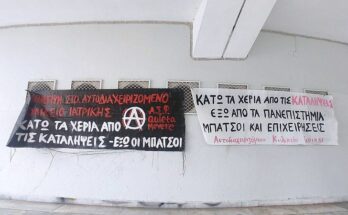 ΑΥΤΟΔΙΑΧΕΙΡΙΖΟΜΕΝΟ
ΙΑΤΡΙΚΗΣ
ΚΑΤΩ ΤΑ ΧΕΡΙΑ ΑΠΟ
ΤΙΣ ΚΑΤΑΛΗΨΕΙΣ - ΕΞΩ ΟΙ ΜΠΑΤΣΟΙ
Α.Σ.Φ.
Quieta
Movere
ΚΑΤΩ ΤΑ ΧΕΡΙΑ ΑΠΟ ΤΙΣ ΚΑΤΑΛΗΨΕΙΣ
ΕΞΩ ΑΠΟ ΤΑ ΠΑΝΕΠΙΣΤΗΜΙΑ
ΜΠΑΤΣΟΙ ΚΑΙ ΕΠΙΧΕΙΡΗΣΕΙΣ
Αυτοδιαχειριζόμενο Κυλικείο